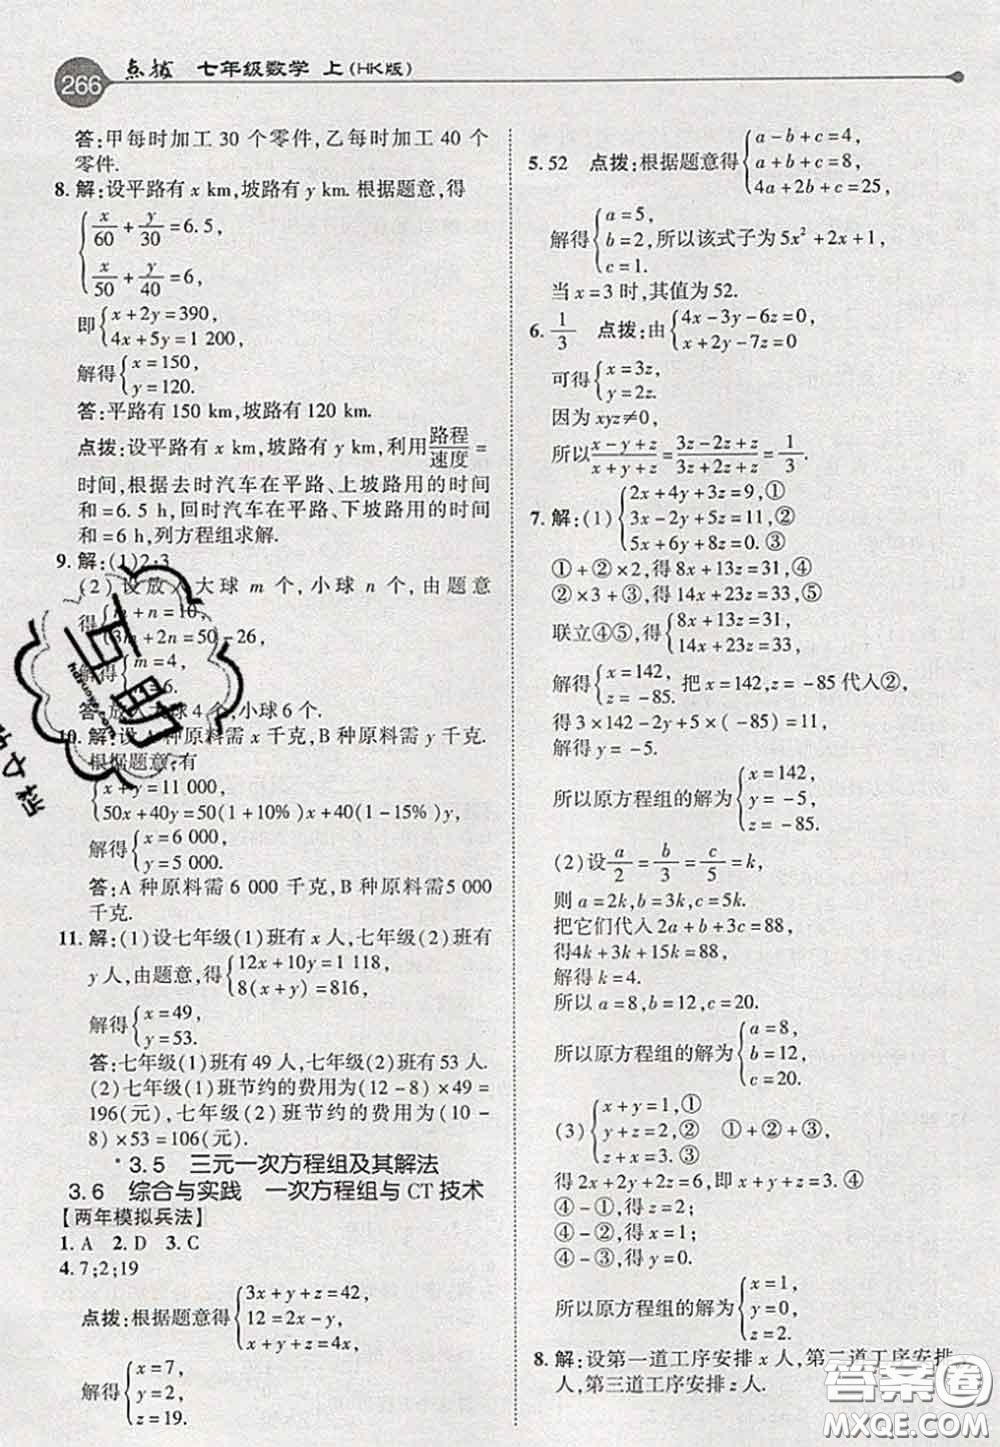 266 点拨 七年级数学 上(HK版)
答:甲每时加工 30 个零件,乙每时加工 40 个
零件.
8. 解:设平路有 x km,坡路有 y km. 根据题意,得
{x/60+y/30=6.5,
x/50+y/40=6,
即{x+2y=390,
4x+5y=1 200,
解得{x=150,
y=120.
答:平路有 150 km,坡路有 120 km.
点拨:设平路有 x km,坡路有 y km,利用路程/速度=
时间,根据去时汽车在平路、上坡路用的时间
和=6.5 h,回时汽车在平路、下坡路用的时间
和=6 h,列方程组求解.
9. 解:(1)2;3
(2)设放入大球 m 个,小球 n 个,由题意
得{m+n=10,
3m+2n=50-26,
解得{m=4,
n=6.
答:放入大球 4 个,小球 6 个.
10. 解:设 A 种原料需 x 千克,B 种原料需 y 千克.
根据题意,有
{x+y=11 000,
50x+40y=50(1+10%)x+40(1-15%)y,
解得{x=6 000,
y=5 000.
答:A 种原料需 6 000 千克,B 种原料需5 000
千克.
11. 解:(1)设七年级(1)班有 x 人,七年级(2)班有
y 人,由题意,得{12x+10y=1 118,
8(x+y)=816,
解得{x=49,
y=53.
答:七年级(1)班有 49 人,七年级(2)班有 53 人.
(2)七年级(1)班节约的费用为(12-8)×49=
196(元),七年级(2)班节约的费用为(10-
8)×53=106(元).
*3.5 三元一次方程组及其解法
3.6 综合与实践 一次方程组与CT技术
【两年模拟兵法】
1. A 2. D 3. C
4. 7;2;19
点拨:根据题意得{3x+y+z=42,
12=2x-y,
x+y+z=4x,
解得{x=7,
y=2,
z=19.
5. 52 点拨:根据题意得{a-b+c=4,
a+b+c=8,
4a+2b+c=25,
解得{a=5,
b=2,所以该式子为 5x²+2x+1,
c=1.
当 x=3 时,其值为 52.
6. 1/3 点拨:由{4x-3y-6z=0,
x+2y-7z=0
可得{x=3z,
y=2z.
因为 xyz≠0,
所以(x-y+z)/(x+y+z)=(3z-2z+z)/(3z+2z+z)=1/3.
7. 解:(1){2x+4y+3z=9,①
3x-2y+5z=11,②
5x+6y+8z=0.③
①+②×2,得 8x+13z=31,④
②×3+③,得 14x+23z=33,⑤
联立④⑤,得{8x+13z=31,
14x+23z=33,
解得{x=142,
z=-85. 把 x=142,z=-85 代入②,
得 3×142-2y+5×(-85)=11,
解得 y=-5.
所以原方程组的解为{x=142,
y=-5,
z=-85.
(2)设a/2=b/3=c/5=k,
则 a=2k,b=3k,c=5k.
把它们代入 2a+b+3c=88,
得4k+3k+15k=88,
解得 k=4.
所以 a=8,b=12,c=20.
所以原方程组的解为{a=8,
b=12,
c=20.
(3){x+y=1,①
y+z=2,② ①+②+③,
x+z=3.③
得 2x+2y+2z=6,即 x+y+z=3.④
④-①,得 z=2;
④-②,得 x=1;
④-③,得 y=0.
所以原方程组的解为{x=1,
y=0,
z=2.
8. 解:设第一道工序安排 x 人,第二道工序安排
人,第三道工序安排 z 人.
答案圈
MXQE.COM